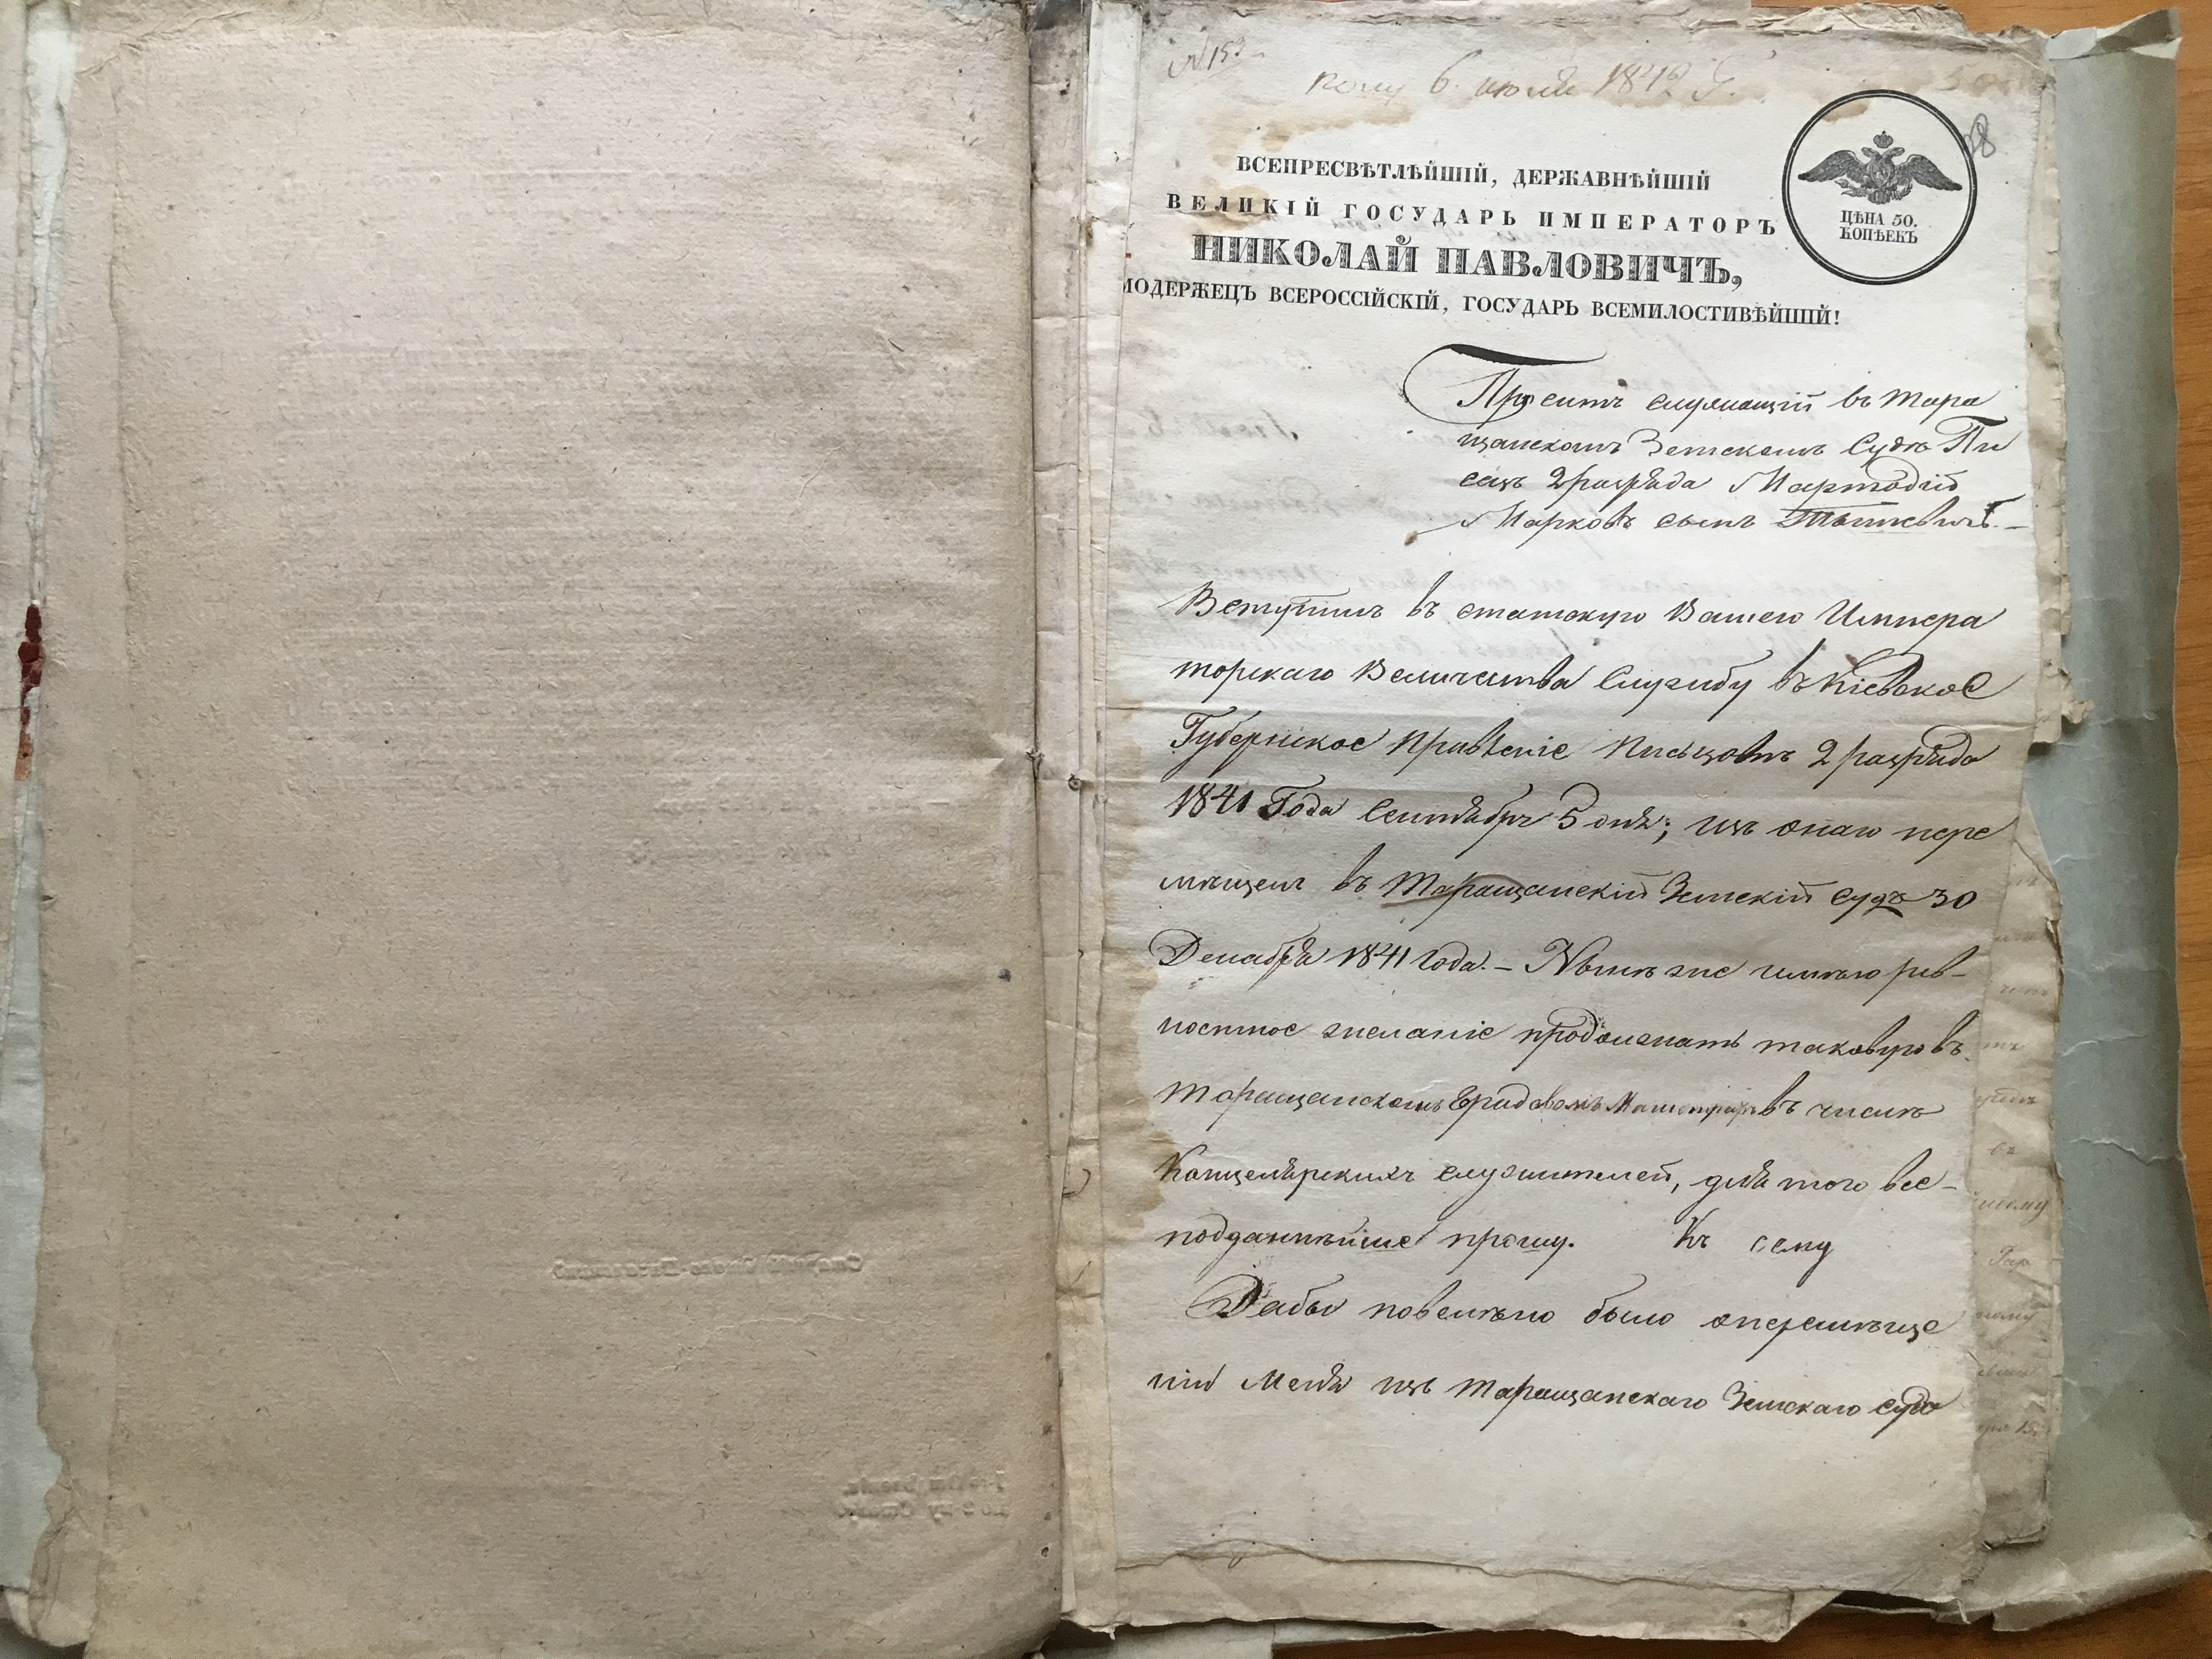 N 153
6 июля 1842 г.
38
ВСЕПРЕСВѢТЛѢЙШІЙ, ДЕРЖАВНѢЙШІЙ
ВЕЛИКІЙ ГОСУДАРЬ ИМПЕРАТОРЪ
НИКОЛАЙ ПАВЛОВИЧЪ,
МОДЕРЖЕЦЪ ВСЕРОССІЙСКІЙ, ГОСУДАРЬ ВСЕМИЛОСТИВѢЙШІЙ!
ЦѢНА 50.
КОПѢЕКЪ
Проситъ служащій въ Тара
щанскомъ Земскомъ Судѣ Пи
сецъ 2 разряда
Марковъ сынъ
Вступилъ въ статскую Вашего Импера
торскаго Величества Службу въ Кіевское
Губернское Правленіе Писцомъ 2 разряда
1841 Года Сентября 5 дня; изъ онаго пере
мѣщенъ въ Таращанскій Земскій Судъ 30
Декабря 1841 Года. – Нынѣ же имѣю рев-
ностное желаніе продолжать таковую въ
Таращанскомъ Градовомъ Магистратѣ въ числѣ
Канцелярскихъ служителей, для того все-
подданнѣйше прошу. Къ сему
Дабы повелѣно было о перемѣще
ніи Меня изъ Таращанскаго Земскаго Суда